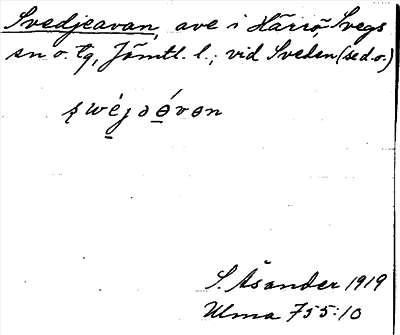 Svedjeavan, ave i Härrö, Svegs
sn o. tg, Jämtl. l.; vid Sveden (se d. o.)
S. Åsander 1919
Ulma 755:10